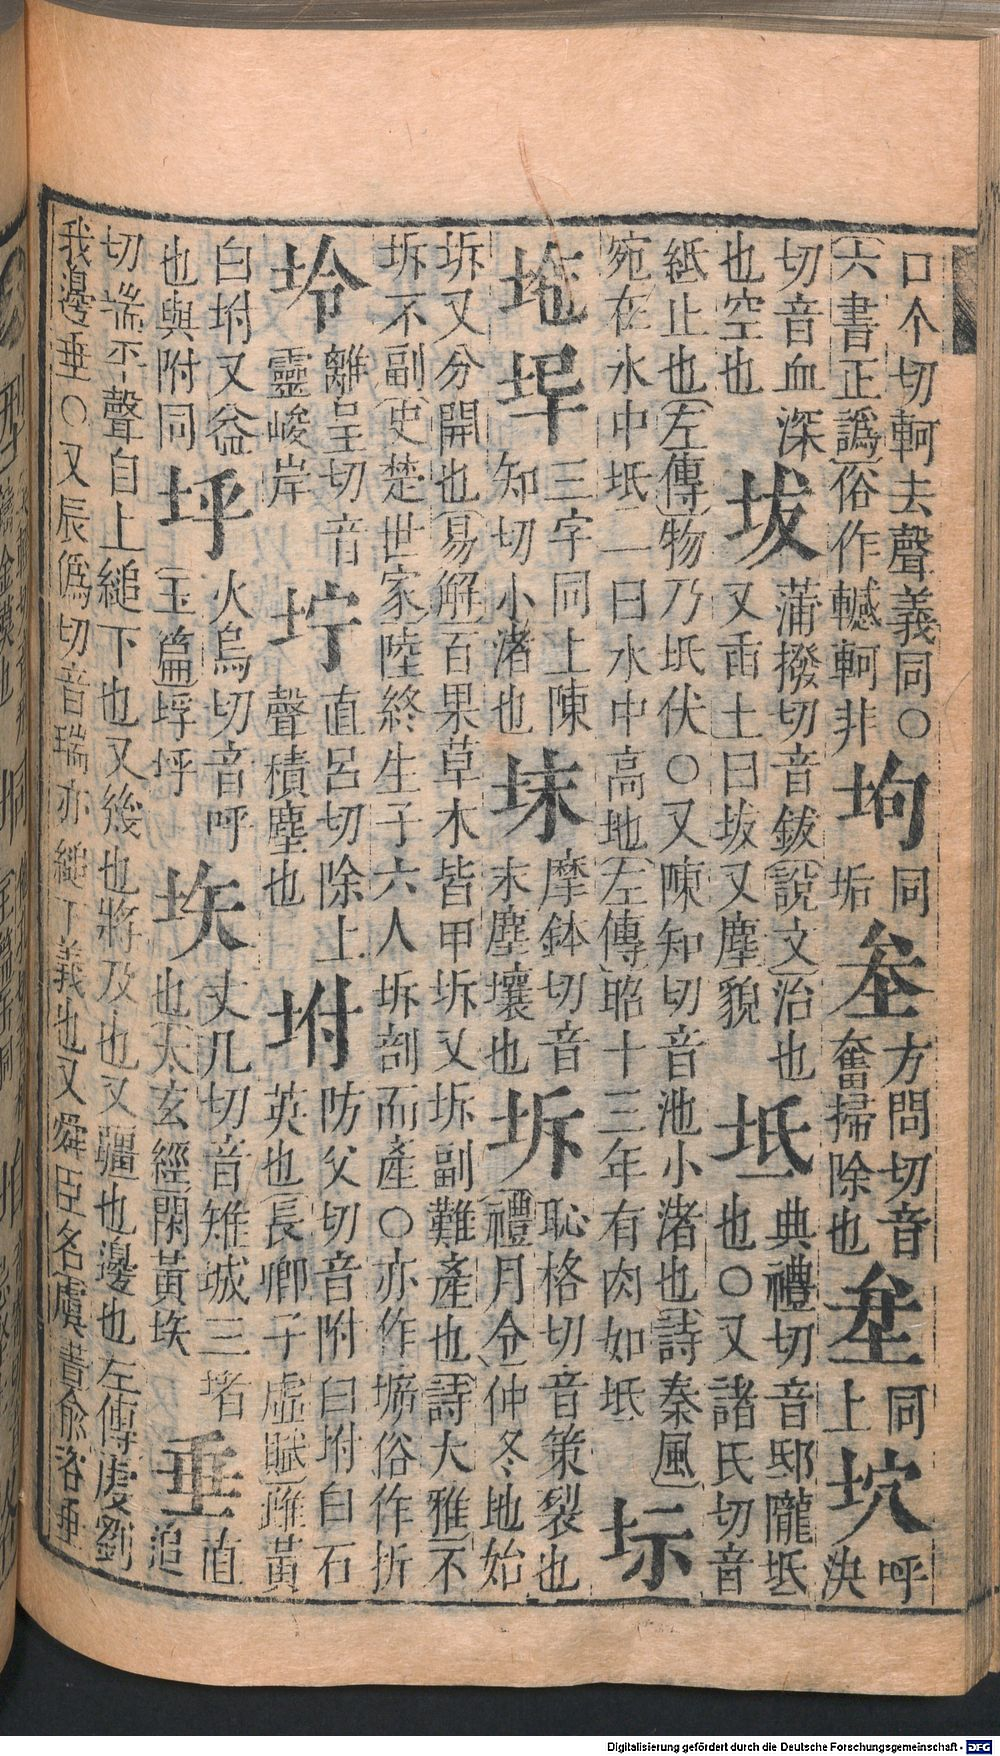 口个切軻去聲義同〇
六書正譌俗作轗軻非
坸
同
垢
坌
方問切音
奮掃除也
同
上
坹
呼
決
切音血深
也空也
坺
蒲撥切音鈸說文治也
又臿土曰坺又塵貌
坻
典禮切音邸隴坻
也〇又諸氏切音
紙止也左傳物乃坻伏〇又陳知切音池小渚也詩秦風
宛在水中坻一曰水中高地左傳昭十三年有肉如坻
三字同上陳
知切小渚也
摩鉢切音
末塵壤也
坼
恥格切音策裂也
禮月令仲冬地始
坼又分開也易解百果草木皆甲坼又坼副難產也詩大雅不
坼不副史楚世家陸終生子六人坼剖而產〇亦作㙤俗作拆
坽
離呈切音
靈峻岸
坾
直呂切除上
聲積塵也
坿
防父切音附白坿白石
英也長卿子虛賦雌黃
白坿又益
也與附同
垀
火烏切音呼
玉篇垺垀
垁
丈几切音雉城三堵
也太玄經閑黃垁
垂
直
追
切 平聲自上縋下也又幾也將及也又疆也邊也左傳虔劉
我邊垂〇又辰僞切音瑞亦縋下義也又舜臣名虞書俞咨垂
Digitalisierung gefördert durch die Deutsche Forschungsgemeinschaft - DFG